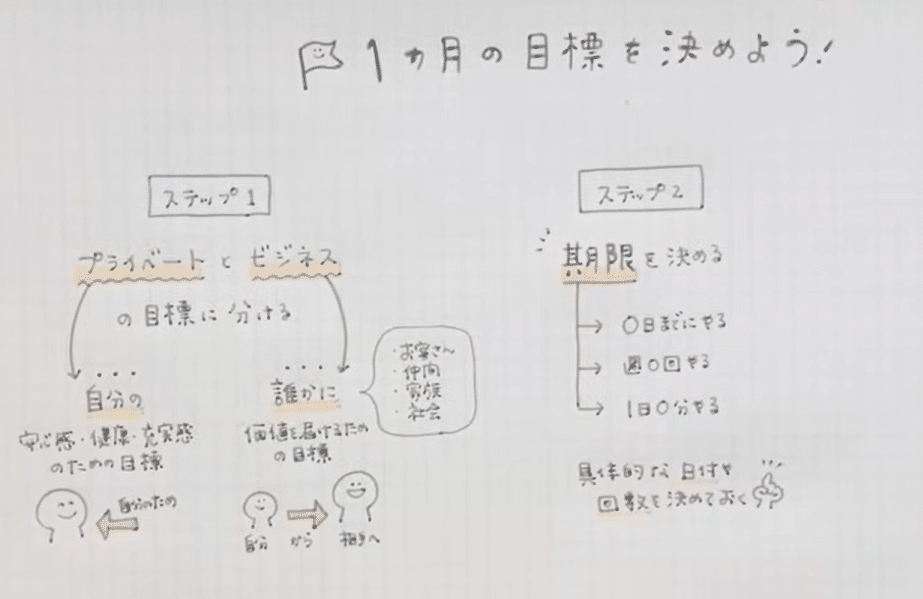 1ヵ月の目標を決めよう!
ステップ1
プライベートとビジネス
の目標に分ける
自分の
安心感・健康・充実感
のための目標
自分のため
誰かに
価値を届けるため
の目標
・お客さん
・仲間
・家族
・社会
自分 から 相手へ
ステップ2
期限を決める
→ 〇日までにやる
→ 週〇回やる
→ 1日〇分やる
具体的な日付や
回数を決めておく